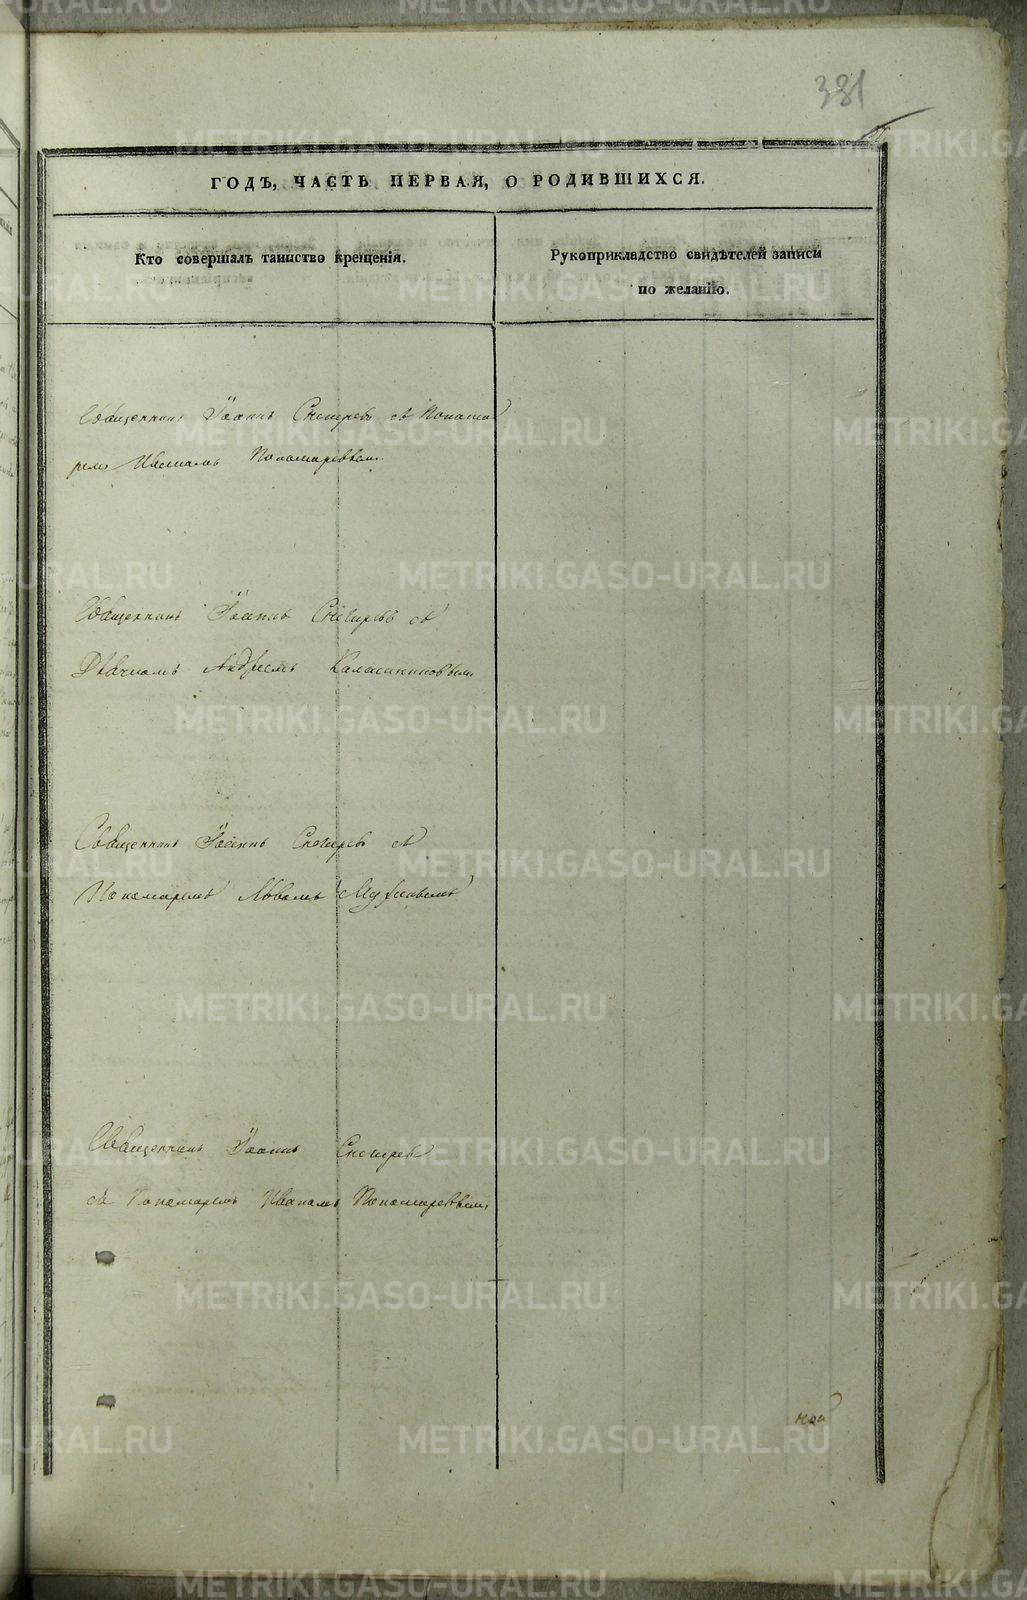 381
ГОДЪ, ЧАСТЬ ПЕРВАЯ, О РОДИВШИХСЯ.
Кто совершалъ таинство крещенія.
Рукоприкладство свидѣтелей записи
по желанію.
Священникъ Іоаннъ Снегиревъ съ Понома
ремъ Иваномъ Пономаревымъ
Священникъ Іоаннъ Снегиревъ съ
Дьячкомъ Андреемъ Калашниковымъ
Священникъ Іоаннъ Снегиревъ съ
Пономаремъ Львомъ
Священникъ Іоаннъ Снегиревъ
съ Пономаремъ Иваномъ Пономаревымъ
METRIKI.GASO-URAL.RU